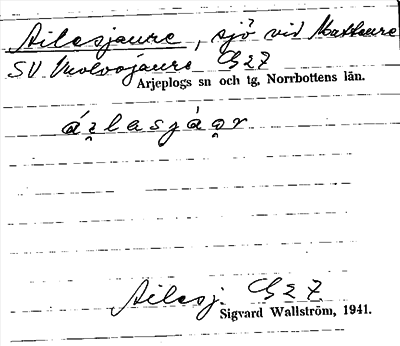 Ailesjaure, sjö vid Mattaure
SV Vuolvojaure G2Z
Arjeplogs sn och tg, Norrbottens län.
áɪ̯laszáo̯r
Ailesj. G2Z
Sigvard Wallström, 1941.